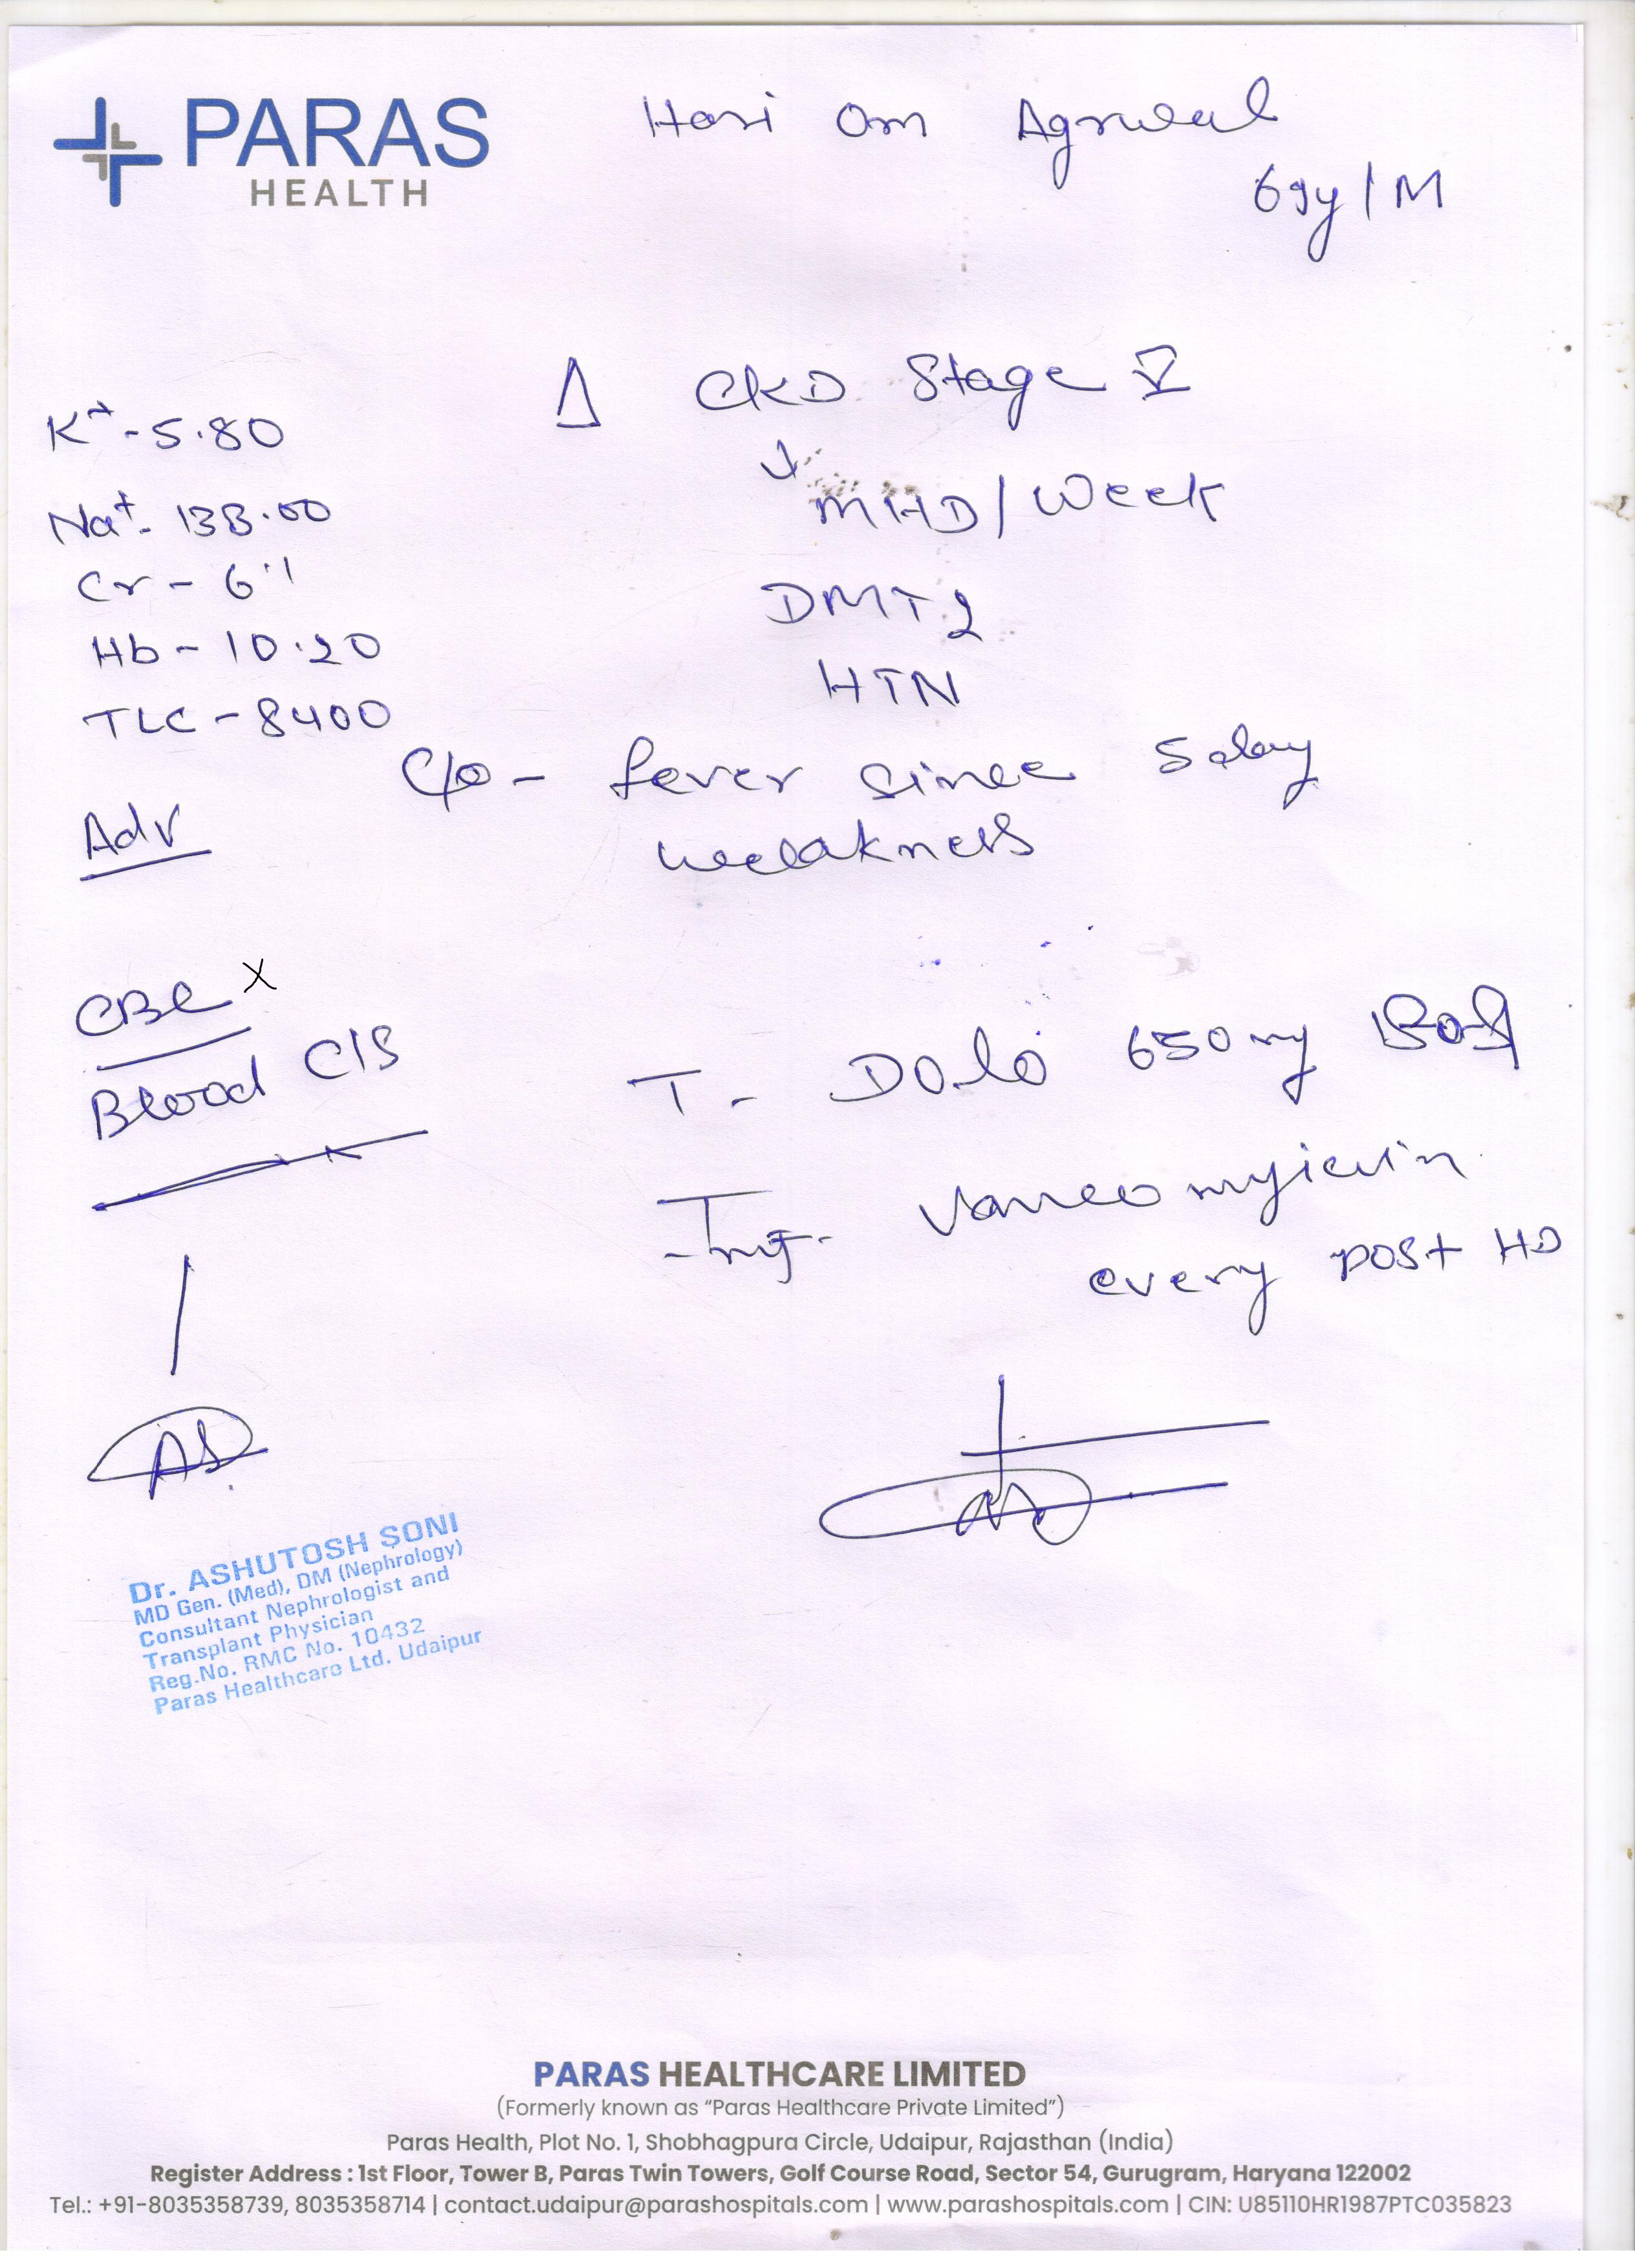 PARAS
HEALTH
Hari Om Agrwal
69y/M
Δ CKD Stage V
↓
MHD/Week
DMT2
HTN
K+-5.80
Na+- 138.00
Cr - 6.1
Hb - 10.20
TLC - 8400
C/o - fever since 5 day
weakness
Adv
CBC X
Blood C/S
T- Dolo 650mg SOS
Inj- Vancomyicin
every post HD
AS
Dr. ASHUTOSH SONI
MD Gen. (Med), DM (Nephrology)
Consultant Nephrologist and
Transplant Physician
Reg.No. RMC No. 10432
Paras Healthcare Ltd. Udaipur
PARAS HEALTHCARE LIMITED
(Formerly known as “Paras Healthcare Private Limited”)
Paras Health, Plot No. 1, Shobhagpura Circle, Udaipur, Rajasthan (India)
Register Address : 1st Floor, Tower B, Paras Twin Towers, Golf Course Road, Sector 54, Gurugram, Haryana 122002
Tel.: +91-8035358739, 8035358714 | contact.udaipur@parashospitals.com | www.parashospitals.com | CIN: U85110HR1987PTC035823